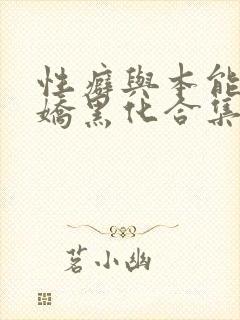 性癖與本能
嬌黑化合集
茗小幽